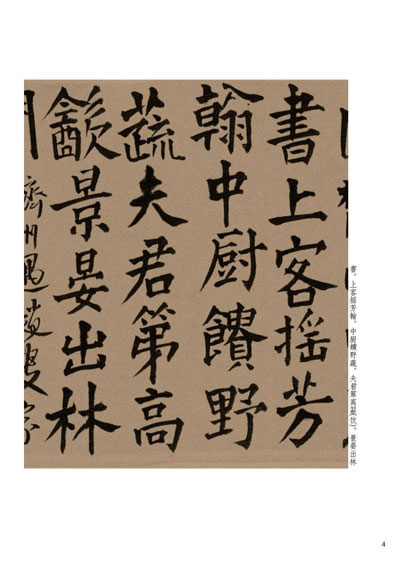 書上客摇芳
翰中厨饋野
蔬夫君第高
㱃景晏出林
濟州過趙叟家
書。上客摇芳翰。中厨饋野蔬。夫君第高㱃(飲)。景晏出林
4